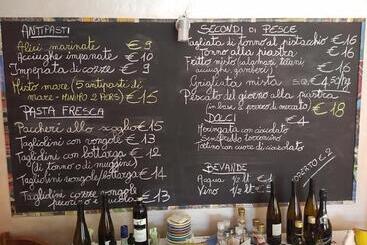 ANTIPASTI
Alici marinate € 9
Acciughe impanate € 10
Impepata di cozze € 9
Misto mare (5 antipasti di
mare - MINIMO 2 PERS) € 15
PASTA FRESCA
Paccheri allo scoglio € 15
Tagliolini con vongole € 13
Tagliolini con bottarga € 12
(di tonno o di muggine)
Tagliolini vongole/bottarga € 14
Tagliolini cozze vongole
pecorino e € 13
SECONDI di PESCE
Tagliata di tonno al pistacchio € 16
Tonno alla piastra € 15
Fritto misto (calamari, totani,
acciughe, gamberi) € 15
Grigliata mista
Pescato del giorno alla piastra
(in base a prezzo di mercato) € 18
DOLCI € 4
Meringata con cioccolato
Semifreddo torroncino
Tortino con cuore di cioccolato
BEVANDE
Acqua € 1
Vino 1/2 lt €
COPERTO € 2